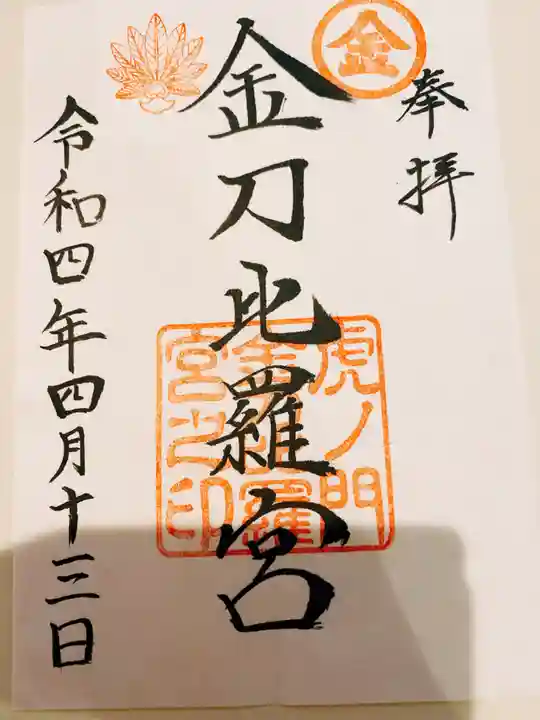 奉拝
金
金刀比羅宮
虎ノ門
金刀比羅
宮之印
令和四年四月十三日